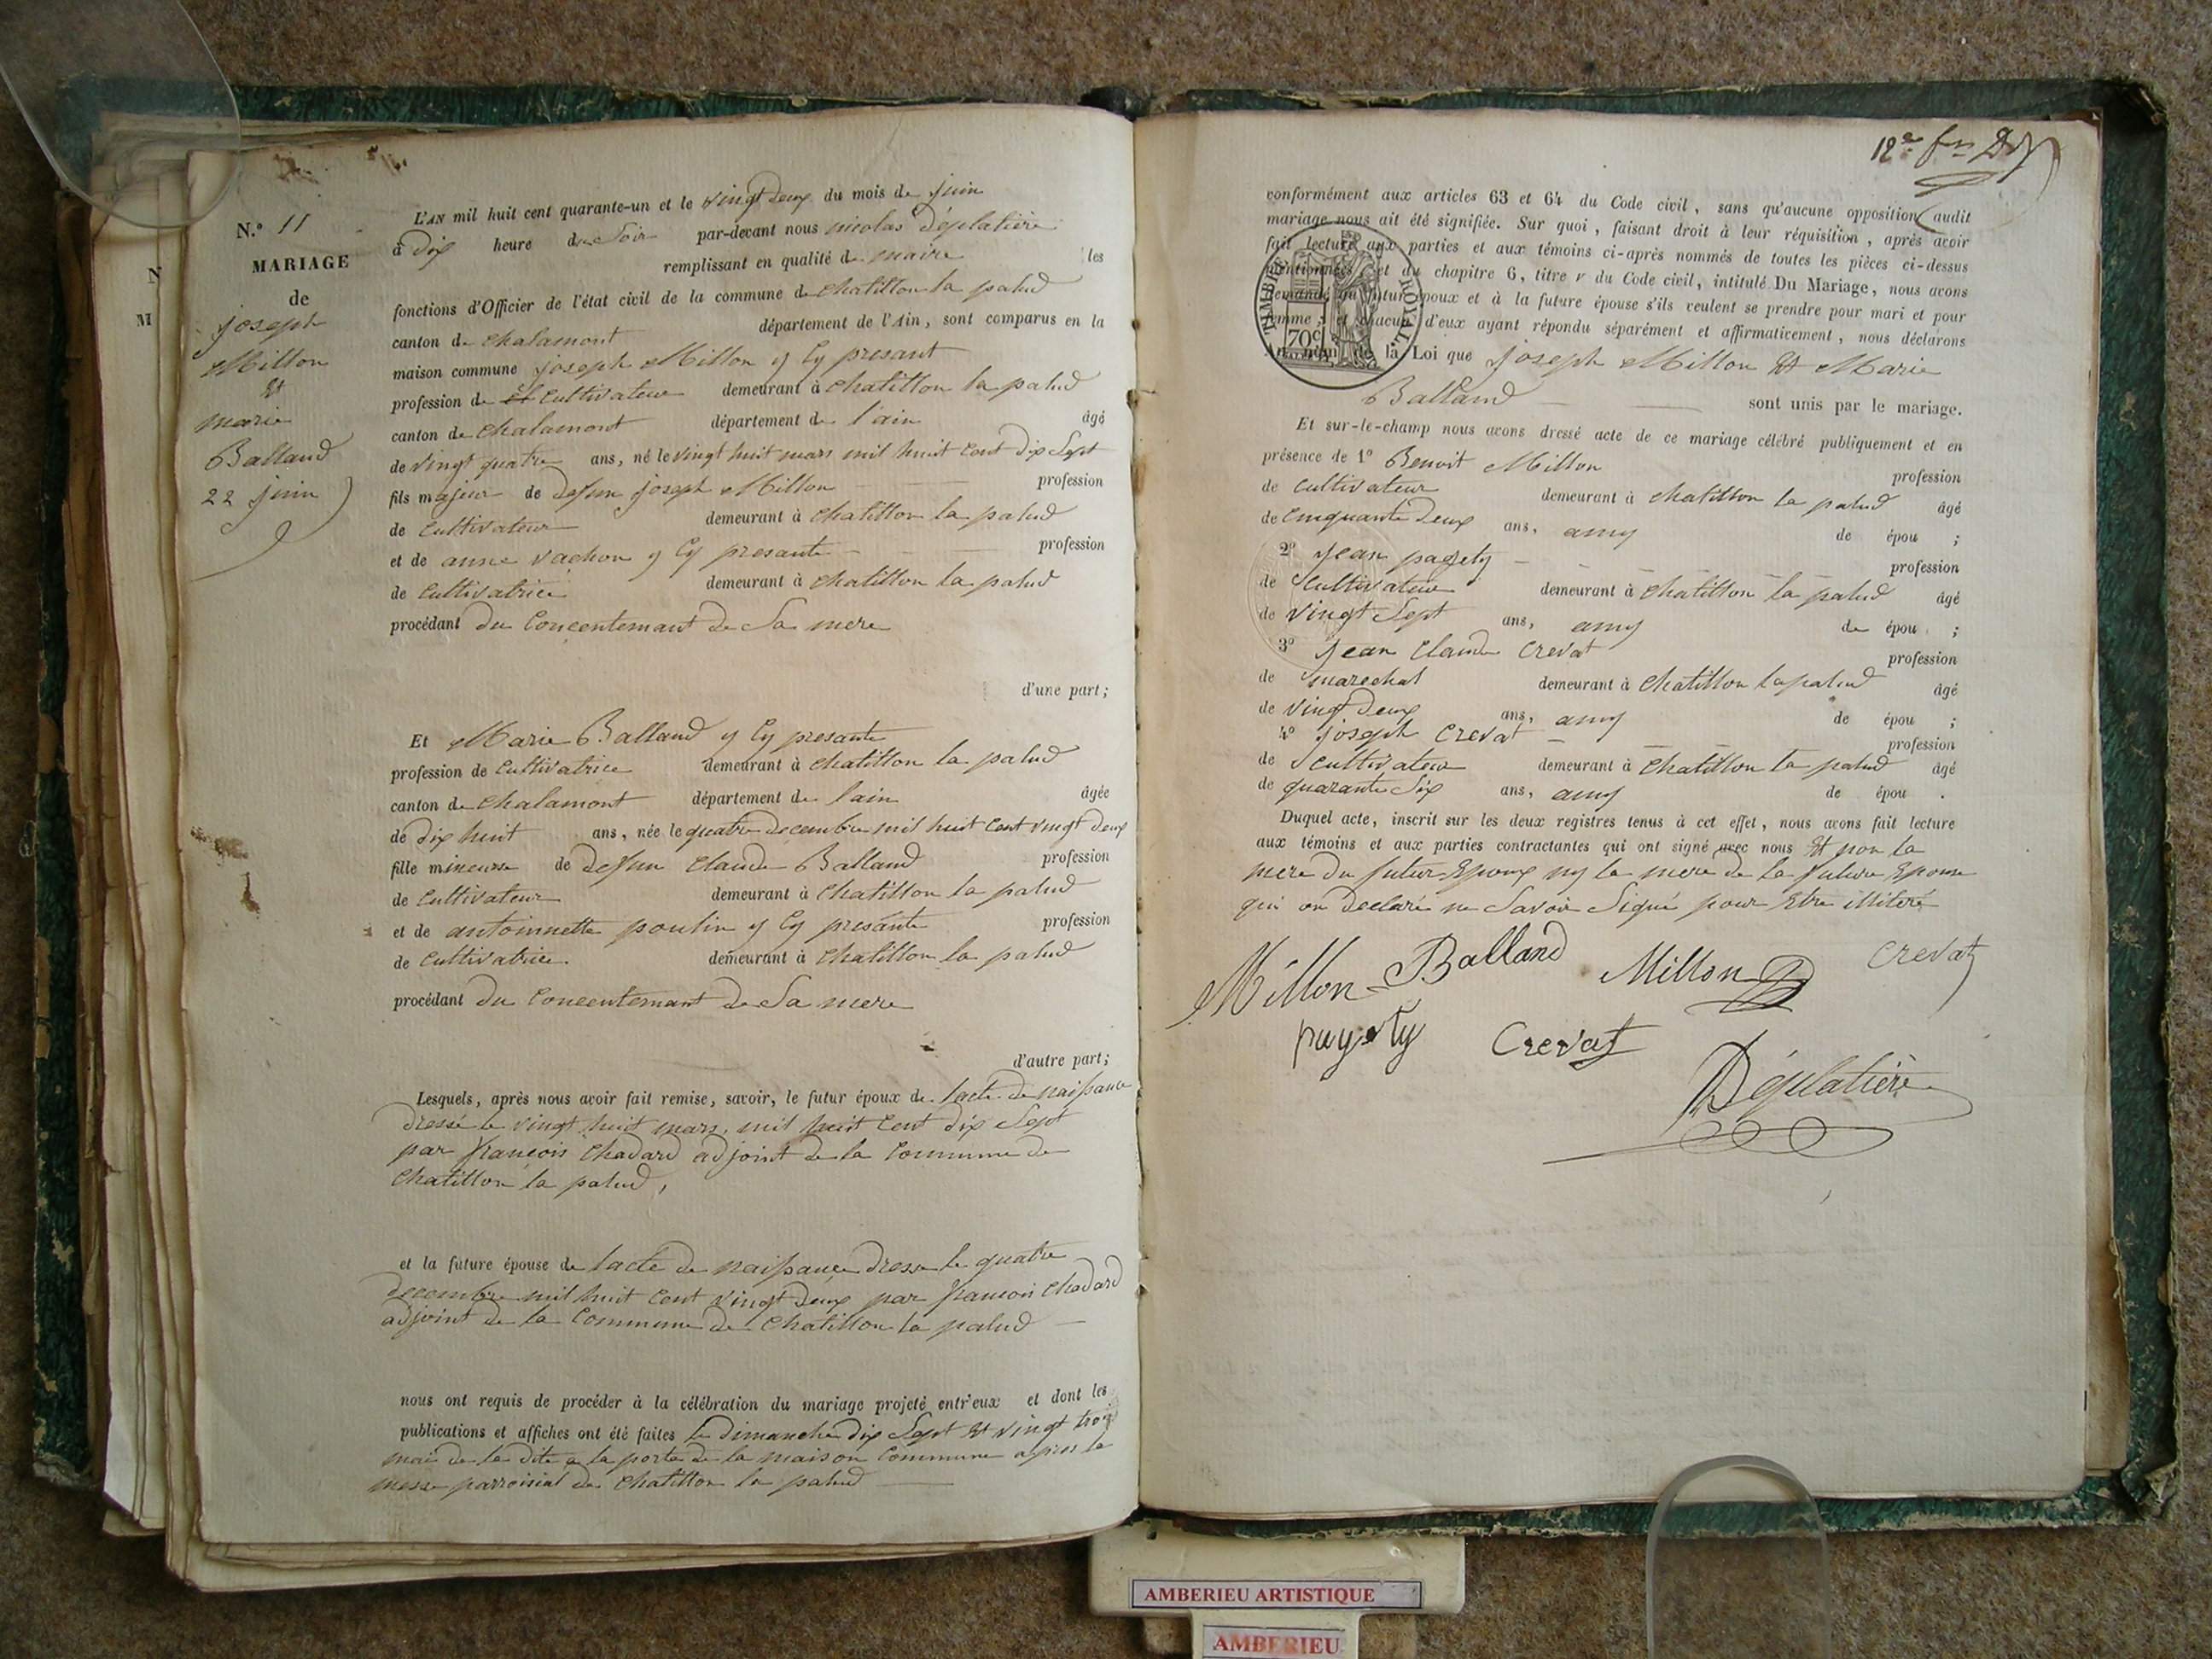 N.° 11
MARIAGE
de
joseph
Millon
et
marie
Balland
22 juin
N
M
L'AN mil huit cent quarante-un et le vingt deux du mois de juin
à dix heure du soir par-devant nous nicolas déplatière
remplissant en qualité de maire les
fonctions d'Officier de l'état civil de la commune de chatillon la palud
canton de chalamont département de l'Ain, sont comparus en la
maison commune joseph Millon y cy presant
profession de cultivateur demeurant à chatillon la palud
canton de chalamont département de l'ain âgé
de vingt quatre ans, né le vingt huit mars mil huit cent dix sept
fils majeur de defun joseph Millon profession
de cultivateur demeurant à chatillon la palud
et de anne vachon y cy presante profession
de cultivatrice demeurant à chatillon la palud
procédant du concentemant de sa mere
d'une part;
Et Marie Balland y cy presante
profession de cultivatrice demeurant à chatillon la palud
canton de chalamont département de lain âgée
de dix huit ans, née le quatre decembre mil huit cent vingt deux
fille mineure de defun claude Balland profession
de cultivateur demeurant à chatillon la palud
et de antoinnette poulin y cy presante profession
de cultivatrice demeurant à chatillon la palud
procédant du concentemant de sa mere
d'autre part;
Lesquels, après nous avoir fait remise, savoir, le futur époux de lacte de naissance
dressé le vingt huit mars mil huit cent dix sept
par francois chadard adjoint de la commune de
chatillon la palud,
et la future épouse de lacte de naissance dresse le quatre
decembre mil huit cent vingt deux par francois chadard
adjoint de la commune de chatillon la palud
nous ont requis de procéder à la célébration du mariage projeté entr'eux et dont les
publications et affiches ont été faites le dimanche dix sept et vingt trois
mai de la dite a la porte de la maison commune apres la
messe parroisial de chatillon la palud
12e
conformément aux articles 63 et 64 du Code civil, sans qu'aucune opposition audit
mariage nous ait été signifiée. Sur quoi, faisant droit à leur réquisition, après avoir
fait lecture aux parties et aux témoins ci-après nommés de toutes les pièces ci-dessus
mentionnées et du chapitre 6, titre v du Code civil, intitulé Du Mariage, nous avons
demandé au futur époux et à la future épouse s'ils veulent se prendre pour mari et pour
femme; et chacun d'eux ayant répondu séparément et affirmativement, nous déclarons
Au nom de la Loi que joseph Millon et Marie
Balland sont unis par le mariage.
TIMBRE ROYAL
70c
Et sur-le-champ nous avons dressé acte de ce mariage célébré publiquement et en
présence de 1° Benoit Millon profession
de cultivateur demeurant à chatillon la palud âgé
de cinquante deux ans, amy de épou ;
2° jean pagety profession
de cultivateur demeurant à chatillon la palud âgé
de vingt sept ans, amy de épou ;
3° jean claude crevat profession
de marechal demeurant à chatillon la palud âgé
de vingt deux ans, amy de épou ;
4° joseph crevat profession
de cultivateur demeurant à chatillon la palud âgé
de quarante six ans, amy de épou .
Duquel acte, inscrit sur les deux registres tenus à cet effet, nous avons fait lecture
aux témoins et aux parties contractantes qui ont signé avec nous et non la
mere du futur Epoux ny la mere de la future Epouse
qui on declaré ne savoir signé pour etre illiteré
Millon Balland Millon crevat
pagety Crevat
Déplatière
AMBERIEU ARTISTIQUE
AMBERIEU